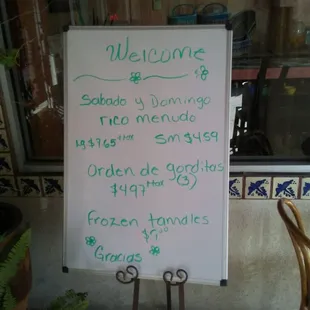 Welcome
Sabado y Domingo
rico menudo
lg $7.65 +tax Sm $4.59
Orden de gorditas
$4.97 +tax (3)
frozen tamales
$7.00
Gracias